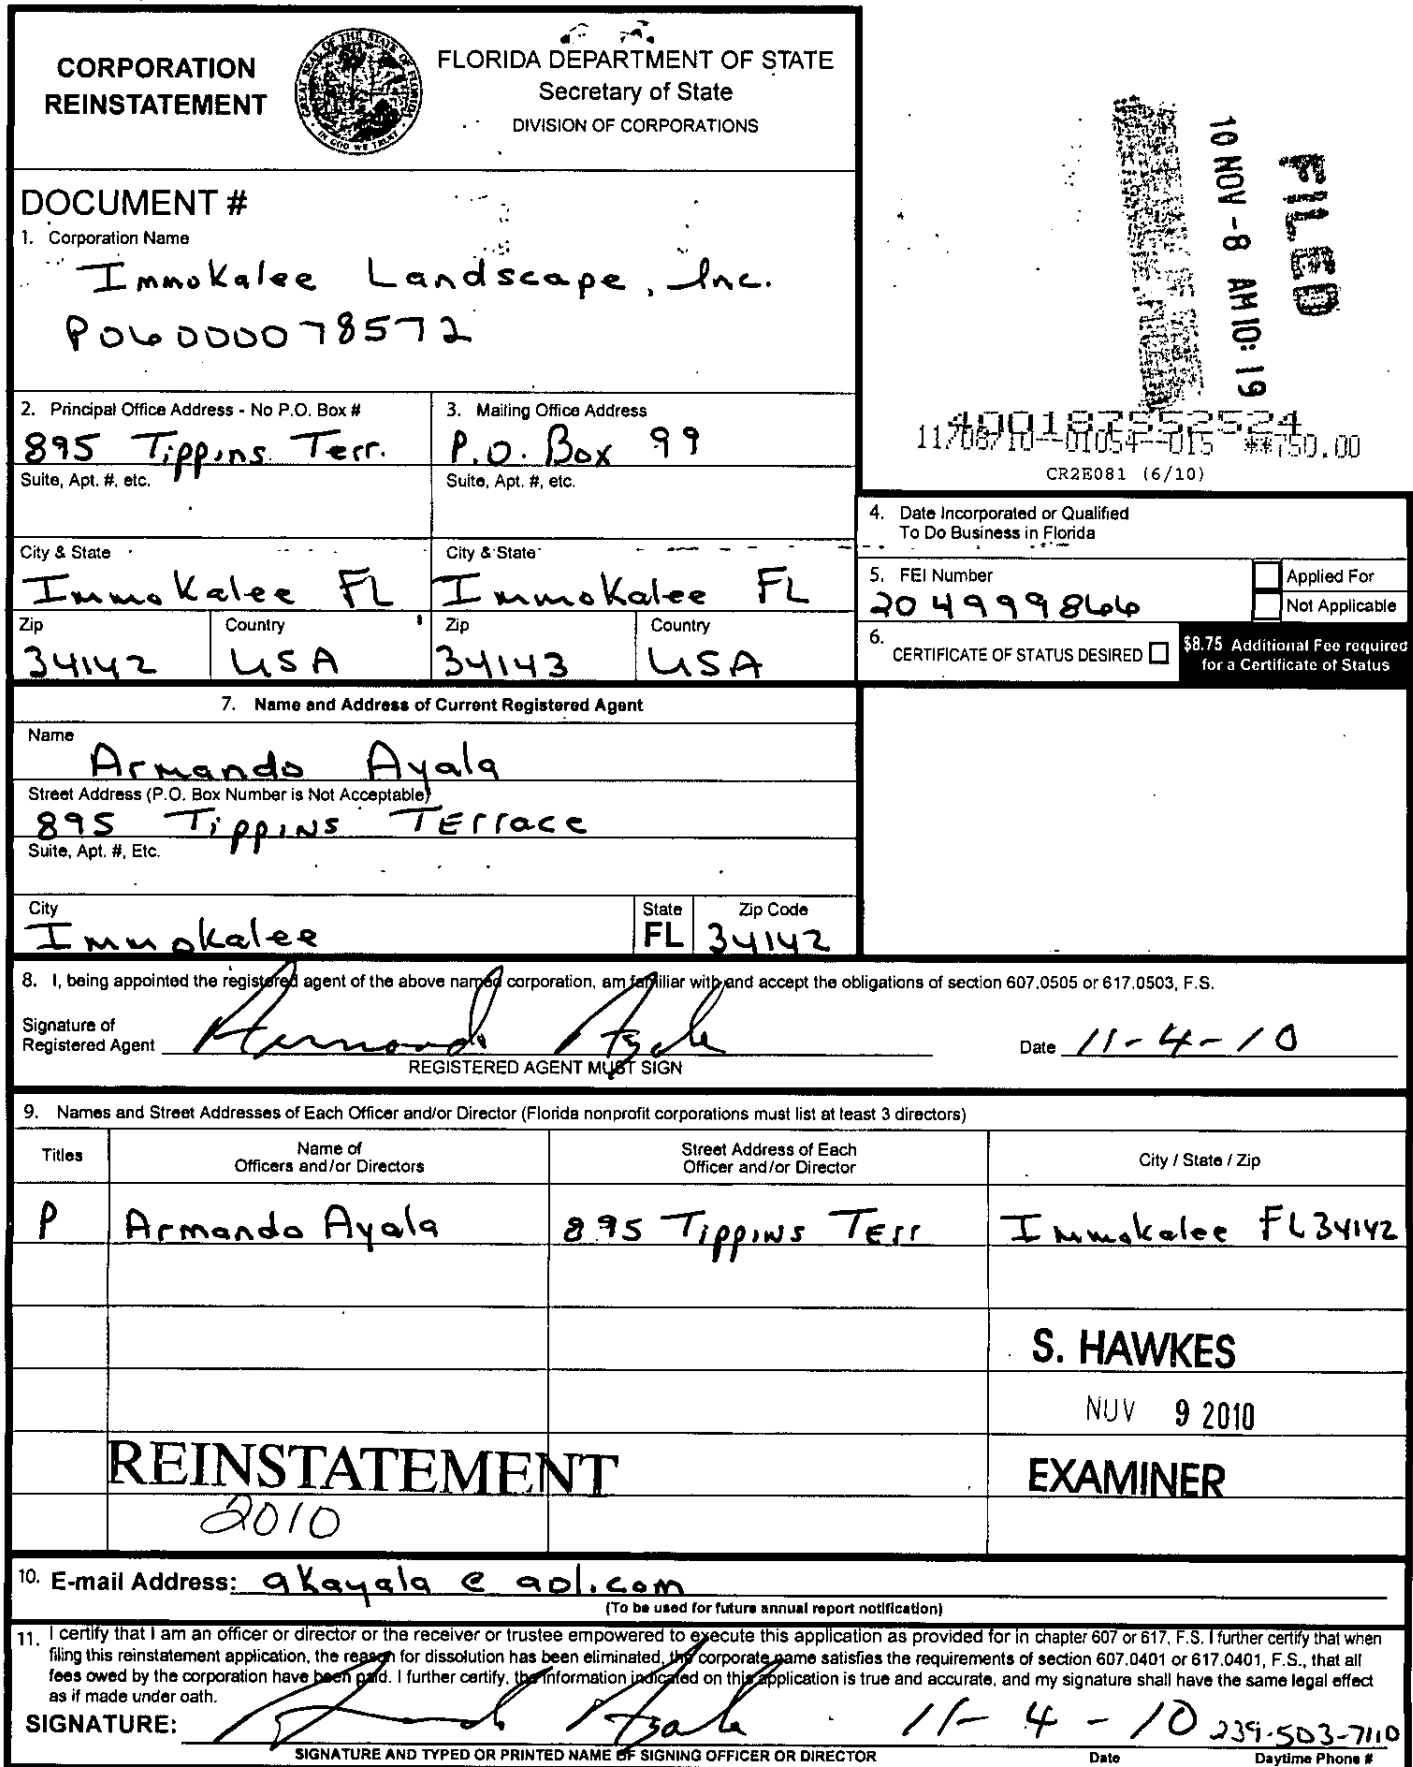 CORPORATION
REINSTATEMENT
GREAT SEAL OF THE STATE OF FLORIDA
IN GOD WE TRUST
FLORIDA DEPARTMENT OF STATE
Secretary of State
DIVISION OF CORPORATIONS
FILED
10 NOV -8 AM 10: 19
DOCUMENT #
1. Corporation Name
Immokalee Landscape, Inc.
P06000078572
400187552524
11/08/10--01054--015 **750.00
CR2E081 (6/10)
2. Principal Office Address - No P.O. Box #
895 Tippins Terr.
Suite, Apt. #, etc.
City & State
Immokalee FL
Zip
34142
Country
USA
3. Mailing Office Address
P.O. Box 99
Suite, Apt. #, etc.
City & State
Immokalee FL
Zip
34143
Country
USA
4. Date Incorporated or Qualified
To Do Business in Florida
5. FEI Number
204999866
Applied For
Not Applicable
6. CERTIFICATE OF STATUS DESIRED
$8.75 Additional Fee required
for a Certificate of Status
7. Name and Address of Current Registered Agent
Name
Armando Ayala
Street Address (P.O. Box Number is Not Acceptable)
895 Tippins Terrace
Suite, Apt. #, Etc.
City
Immokalee
State
FL
Zip Code
34142
8. I, being appointed the registered agent of the above named corporation, am familiar with and accept the obligations of section 607.0505 or 617.0503, F.S.
Signature of
Registered Agent
Armando Ayala
Date 11-4-10
REGISTERED AGENT MUST SIGN
9. Names and Street Addresses of Each Officer and/or Director (Florida nonprofit corporations must list at least 3 directors)
Titles
Name of
Officers and/or Directors
Street Address of Each
Officer and/or Director
City / State / Zip
P Armando Ayala 895 Tippins Terr Immokalee FL 34142
S. HAWKES
NOV 9 2010
EXAMINER
REINSTATEMENT
2010
10. E-mail Address: akayala @ aol.com
(To be used for future annual report notification)
11. I certify that I am an officer or director or the receiver or trustee empowered to execute this application as provided for in chapter 607 or 617, F.S. I further certify that when
filing this reinstatement application, the reason for dissolution has been eliminated, the corporate name satisfies the requirements of section 607.0401 or 617.0401, F.S., that all
fees owed by the corporation have been paid. I further certify, the information indicated on this application is true and accurate, and my signature shall have the same legal effect
as if made under oath.
SIGNATURE: Armando Ayala 11-4-10 239-503-7110
SIGNATURE AND TYPED OR PRINTED NAME OF SIGNING OFFICER OR DIRECTOR
Date
Daytime Phone #